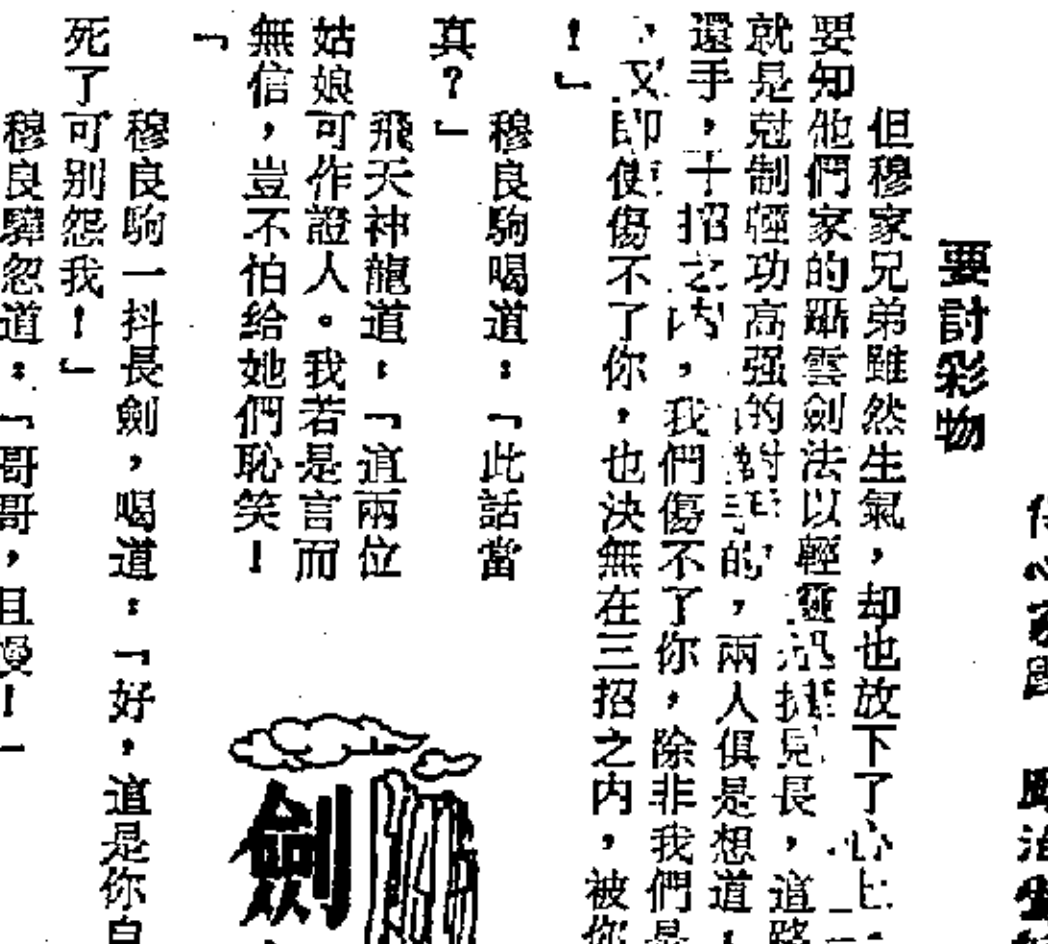 要討彩物
但穆家兄弟雖然生氣，却也放下了心上
要知他們家的躡雲劍法以輕靈迅捷見長，這路
就是尅制輕功高强的對手的，兩人俱是想道：
還手，十招之内，我們傷不了你，除非我們是
、又即使傷不了你，也決無在三招之内，被你
！」
穆良駒喝道：「此話當
真？」
飛天神龍道：「這兩位
姑娘可作證人。我若是言而
無信，豈不怕給她們恥笑！
」
穆良駒一抖長劍，喝道：「好，這是你自
死了可别怨我！」
穆良驊忽道：「哥哥，且慢！」
劍